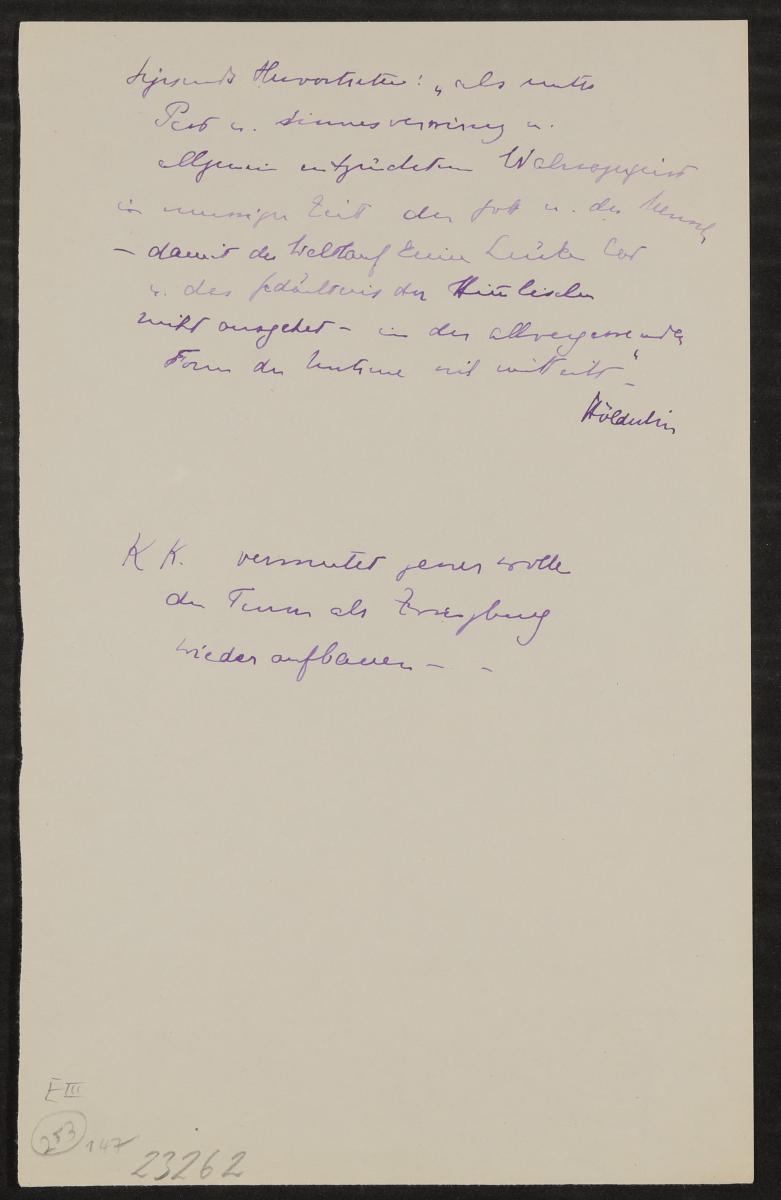 Sigismunds Hervortreten: „als unter
Pest u. Sinnesverwirrung u.
allgemein entzündetem Wahrsagergeist
in müssiger Zeit der Gott u. der Mensch
– damit der Weltlauf keine Lücke hat
u. das Gedächtnis der Himlischen
nicht ausgehet – in der allvergessenden
Form der Untreue sich mitteilt“ –
Hölderlin
K K. vermutet jener wolle
den Turm als Zwingburg
wieder aufbauen – –
E III
253 147
23262